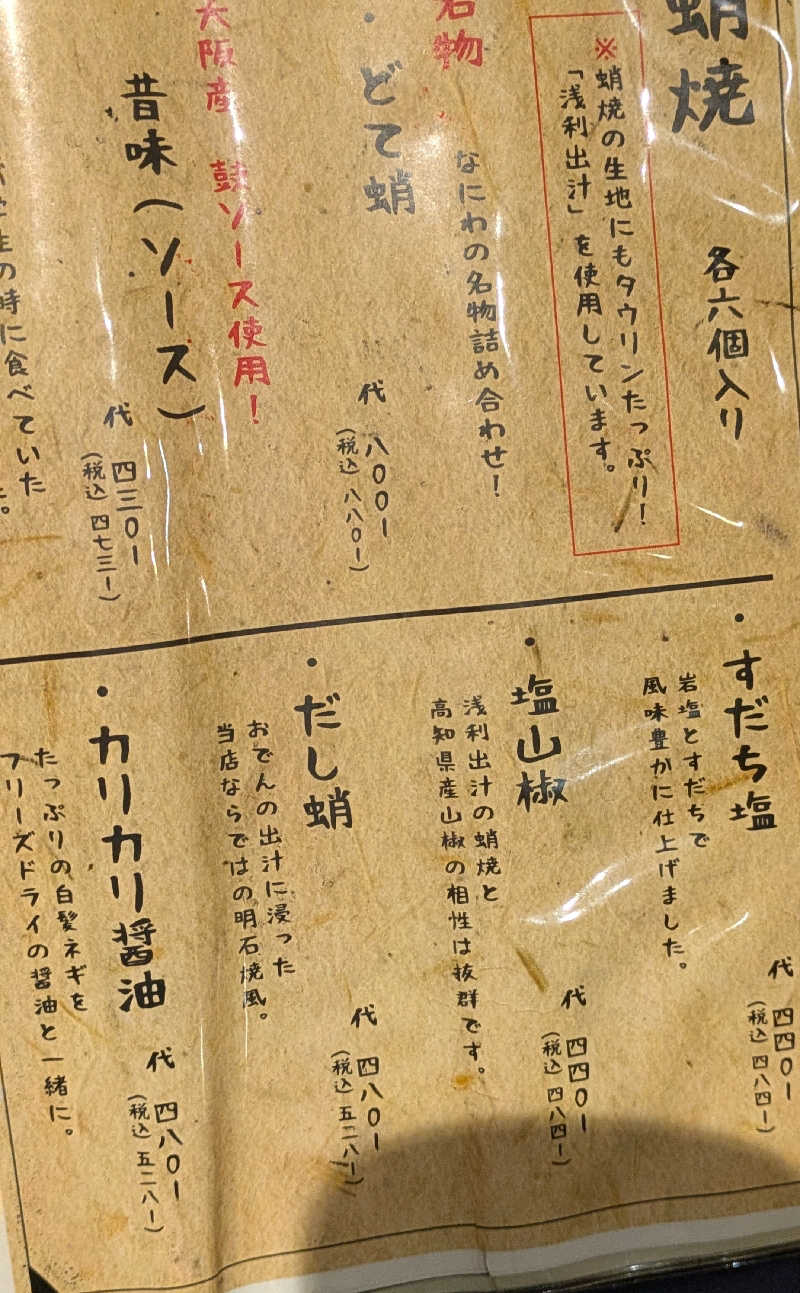 蛸焼 各六個入り
※蛸焼の生地にもタウリンたっぷり!
「浅利出汁」を使用しています。
名物
なにわの名物詰め合わせ!
・どて蛸
代 八〇〇ー
(税込 八八〇ー)
大阪産 鼓ソース使用!
昔味(ソース)
代 四三〇ー
(税込 四七三ー)
の時に食べていた
・すだち塩
岩塩とすだちで
風味豊かに仕上げました。
代 四四〇ー
(税込 四八四ー)
・塩山椒
浅利出汁の蛸焼と
高知県産山椒の相性は抜群です。
代 四四〇ー
(税込 四八四ー)
・だし蛸
おでんの出汁に浸った
当店ならではの明石焼風。
代 四八〇ー
(税込 五二八ー)
・カリカリ醤油
たっぷりの白髪ネギを
フリーズドライの醤油と一緒に。
代 四八〇ー
(税込 五二八ー)